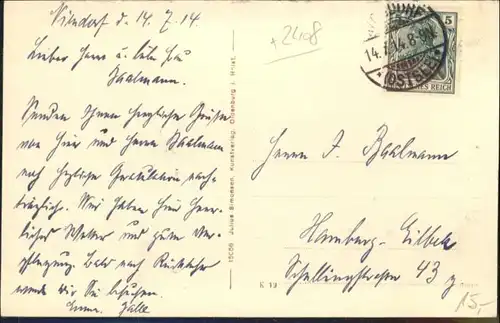 Niendorf d. 14. 7. 14.
Lieber Herr u. liebe Frau
Baalmann.
Senden Ihnen herzliche Grüsse
von hier und Herrn Baalmann
noch herzliche Gratulation nach-
träglich. Wir haben hier herr-
liches Wetter und gute Ver-
pflegung. Bald nach Rückkehr
werde wir Sie besuchen.
+2408
14.7.14.8-9N.
(OSTSEE)
5
DEUTSCHES REICH
15056 Julius Simonsen, Kunstverlag, Oldenburg i. Holst.
Herrn J. Baalmann
Hamburg-Eilbek
Schellingstrasse 43
K 19
15,-